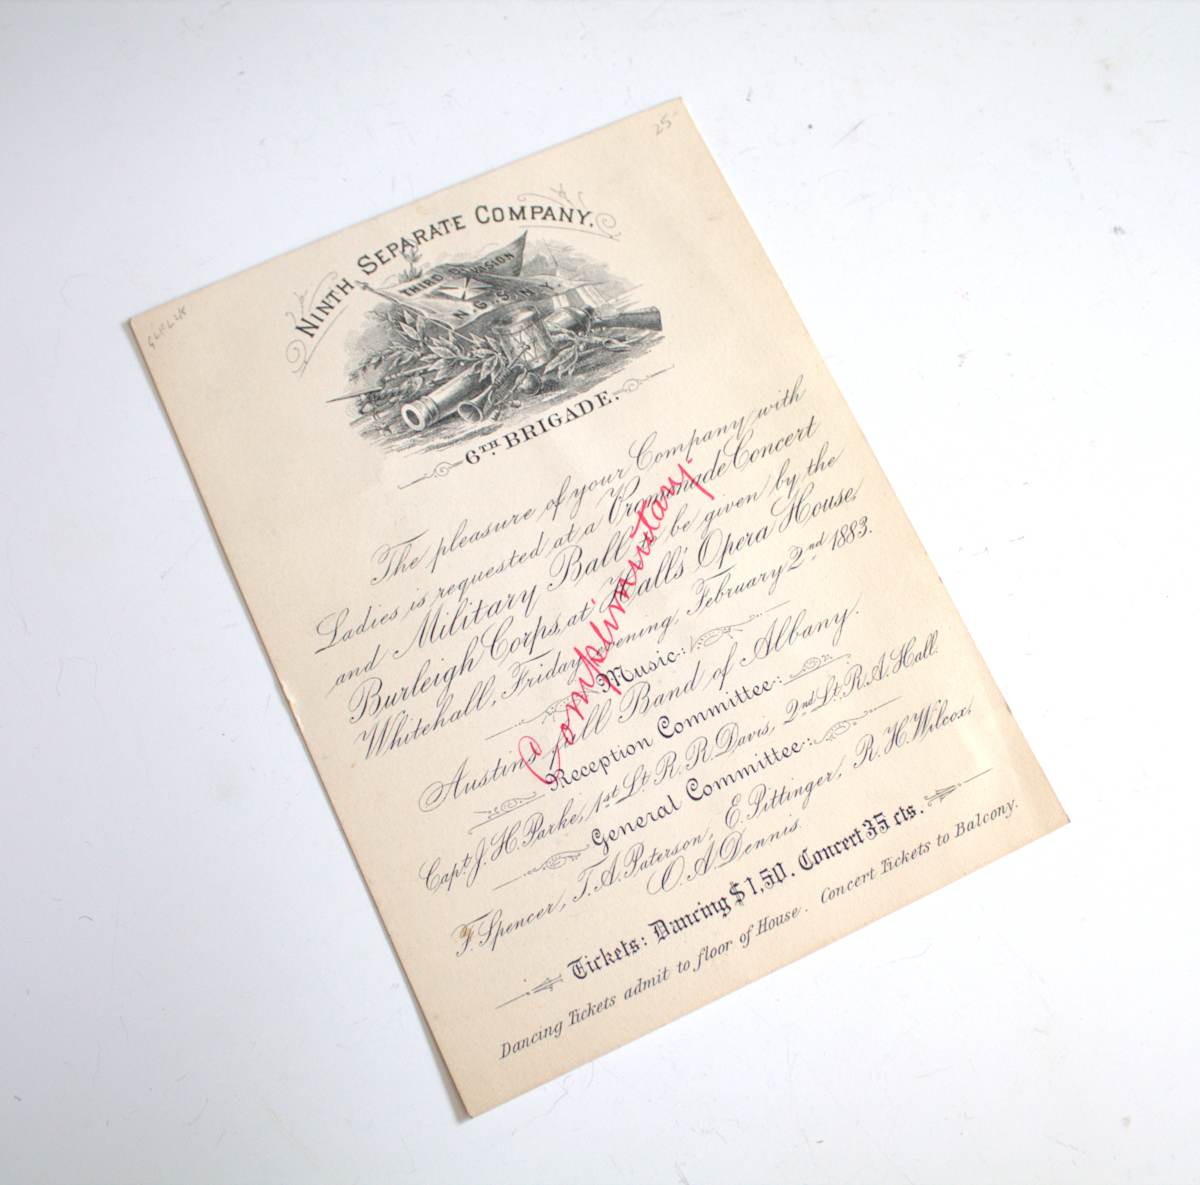 25-
NINTH SEPARATE COMPANY,
THIRD DIVISION
N.G.S.N.Y.
6TH BRIGADE.
The pleasure of your Company with
Ladies is requested at a Promenade Concert
and Military Ball to be given by the
Burleigh Corps, at Hall's Opera House,
Whitehall, Friday evening, February 2nd 1883.
Complimentary.
Music:
Austin's full Band of Albany.
Reception Committee:
Capt. J. H. Parke, 1st Lt. R. R. Davis, 2nd Lt. R. A. Hall.
General Committee:
F. Spencer, T. A. Paterson, E. Pittinger, R. H. Wilcox,
O. A. Dennis.
Tickets: Dancing $1,50. Concert 35 cts.
Dancing Tickets admit to floor of House. Concert Tickets to Balcony.